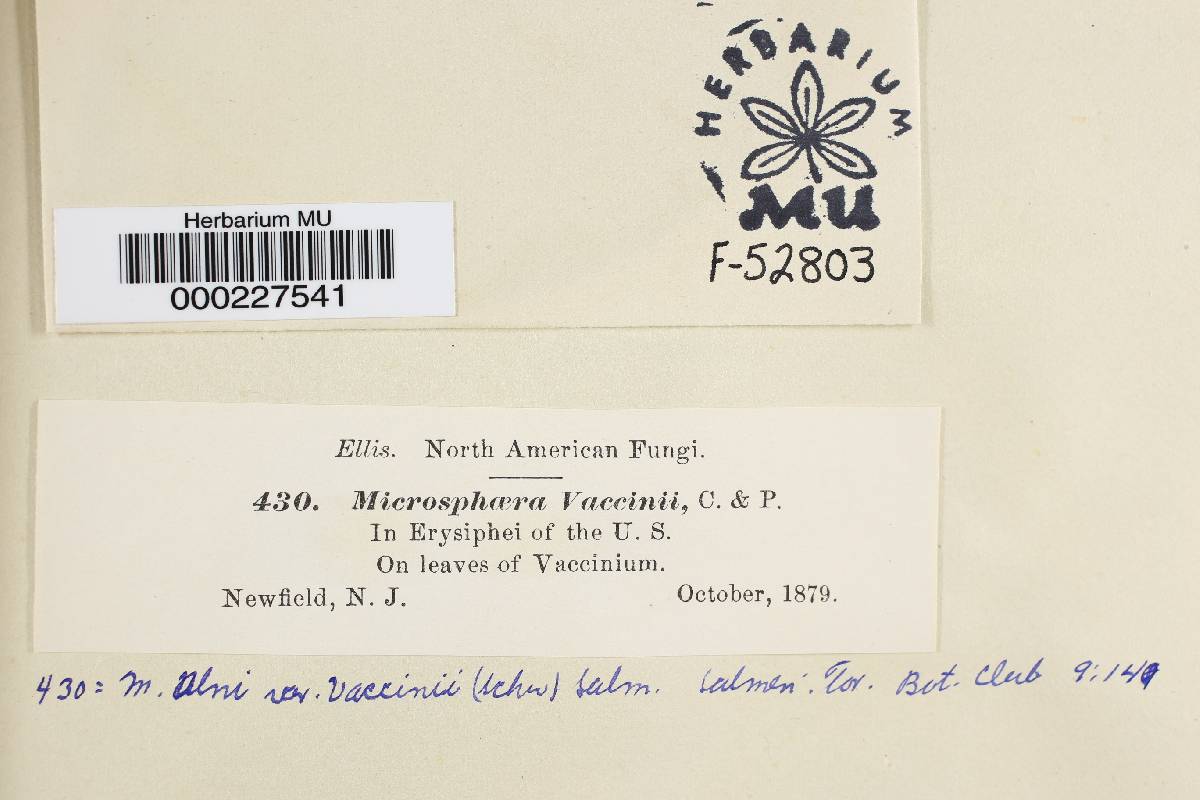 HERBARIUM
MU
F-52803
Herbarium MU
000227541
Ellis. North American Fungi.
430. Microsphæra Vaccinii, C. & P.
In Erysiphei of the U. S.
On leaves of Vaccinium.
Newfield, N. J. October, 1879.
430 = M. Alni var. Vaccinii (Schw) Salm. Salmon. Tor. Bot. Club 9:149